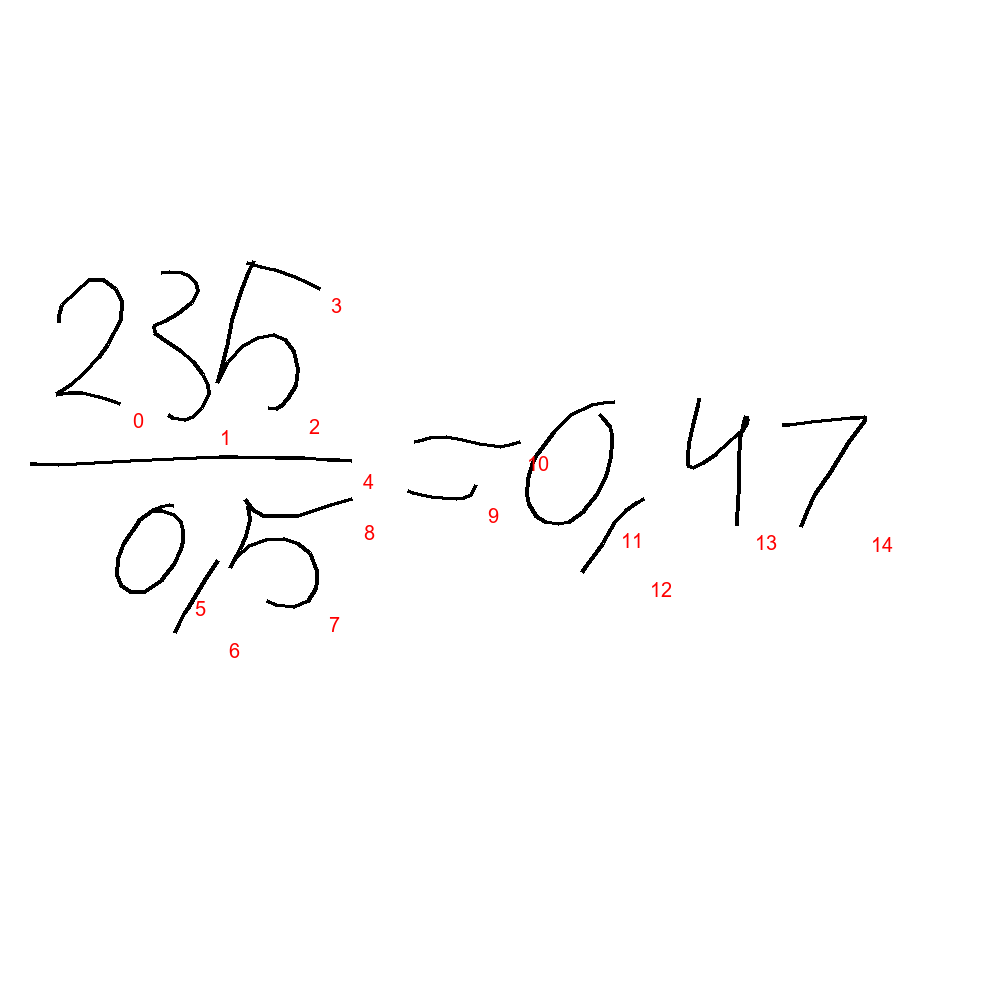 235
0,5 = 0,47
0
1
2
3
4
5
6
7
8
9
10
11
12
13
14